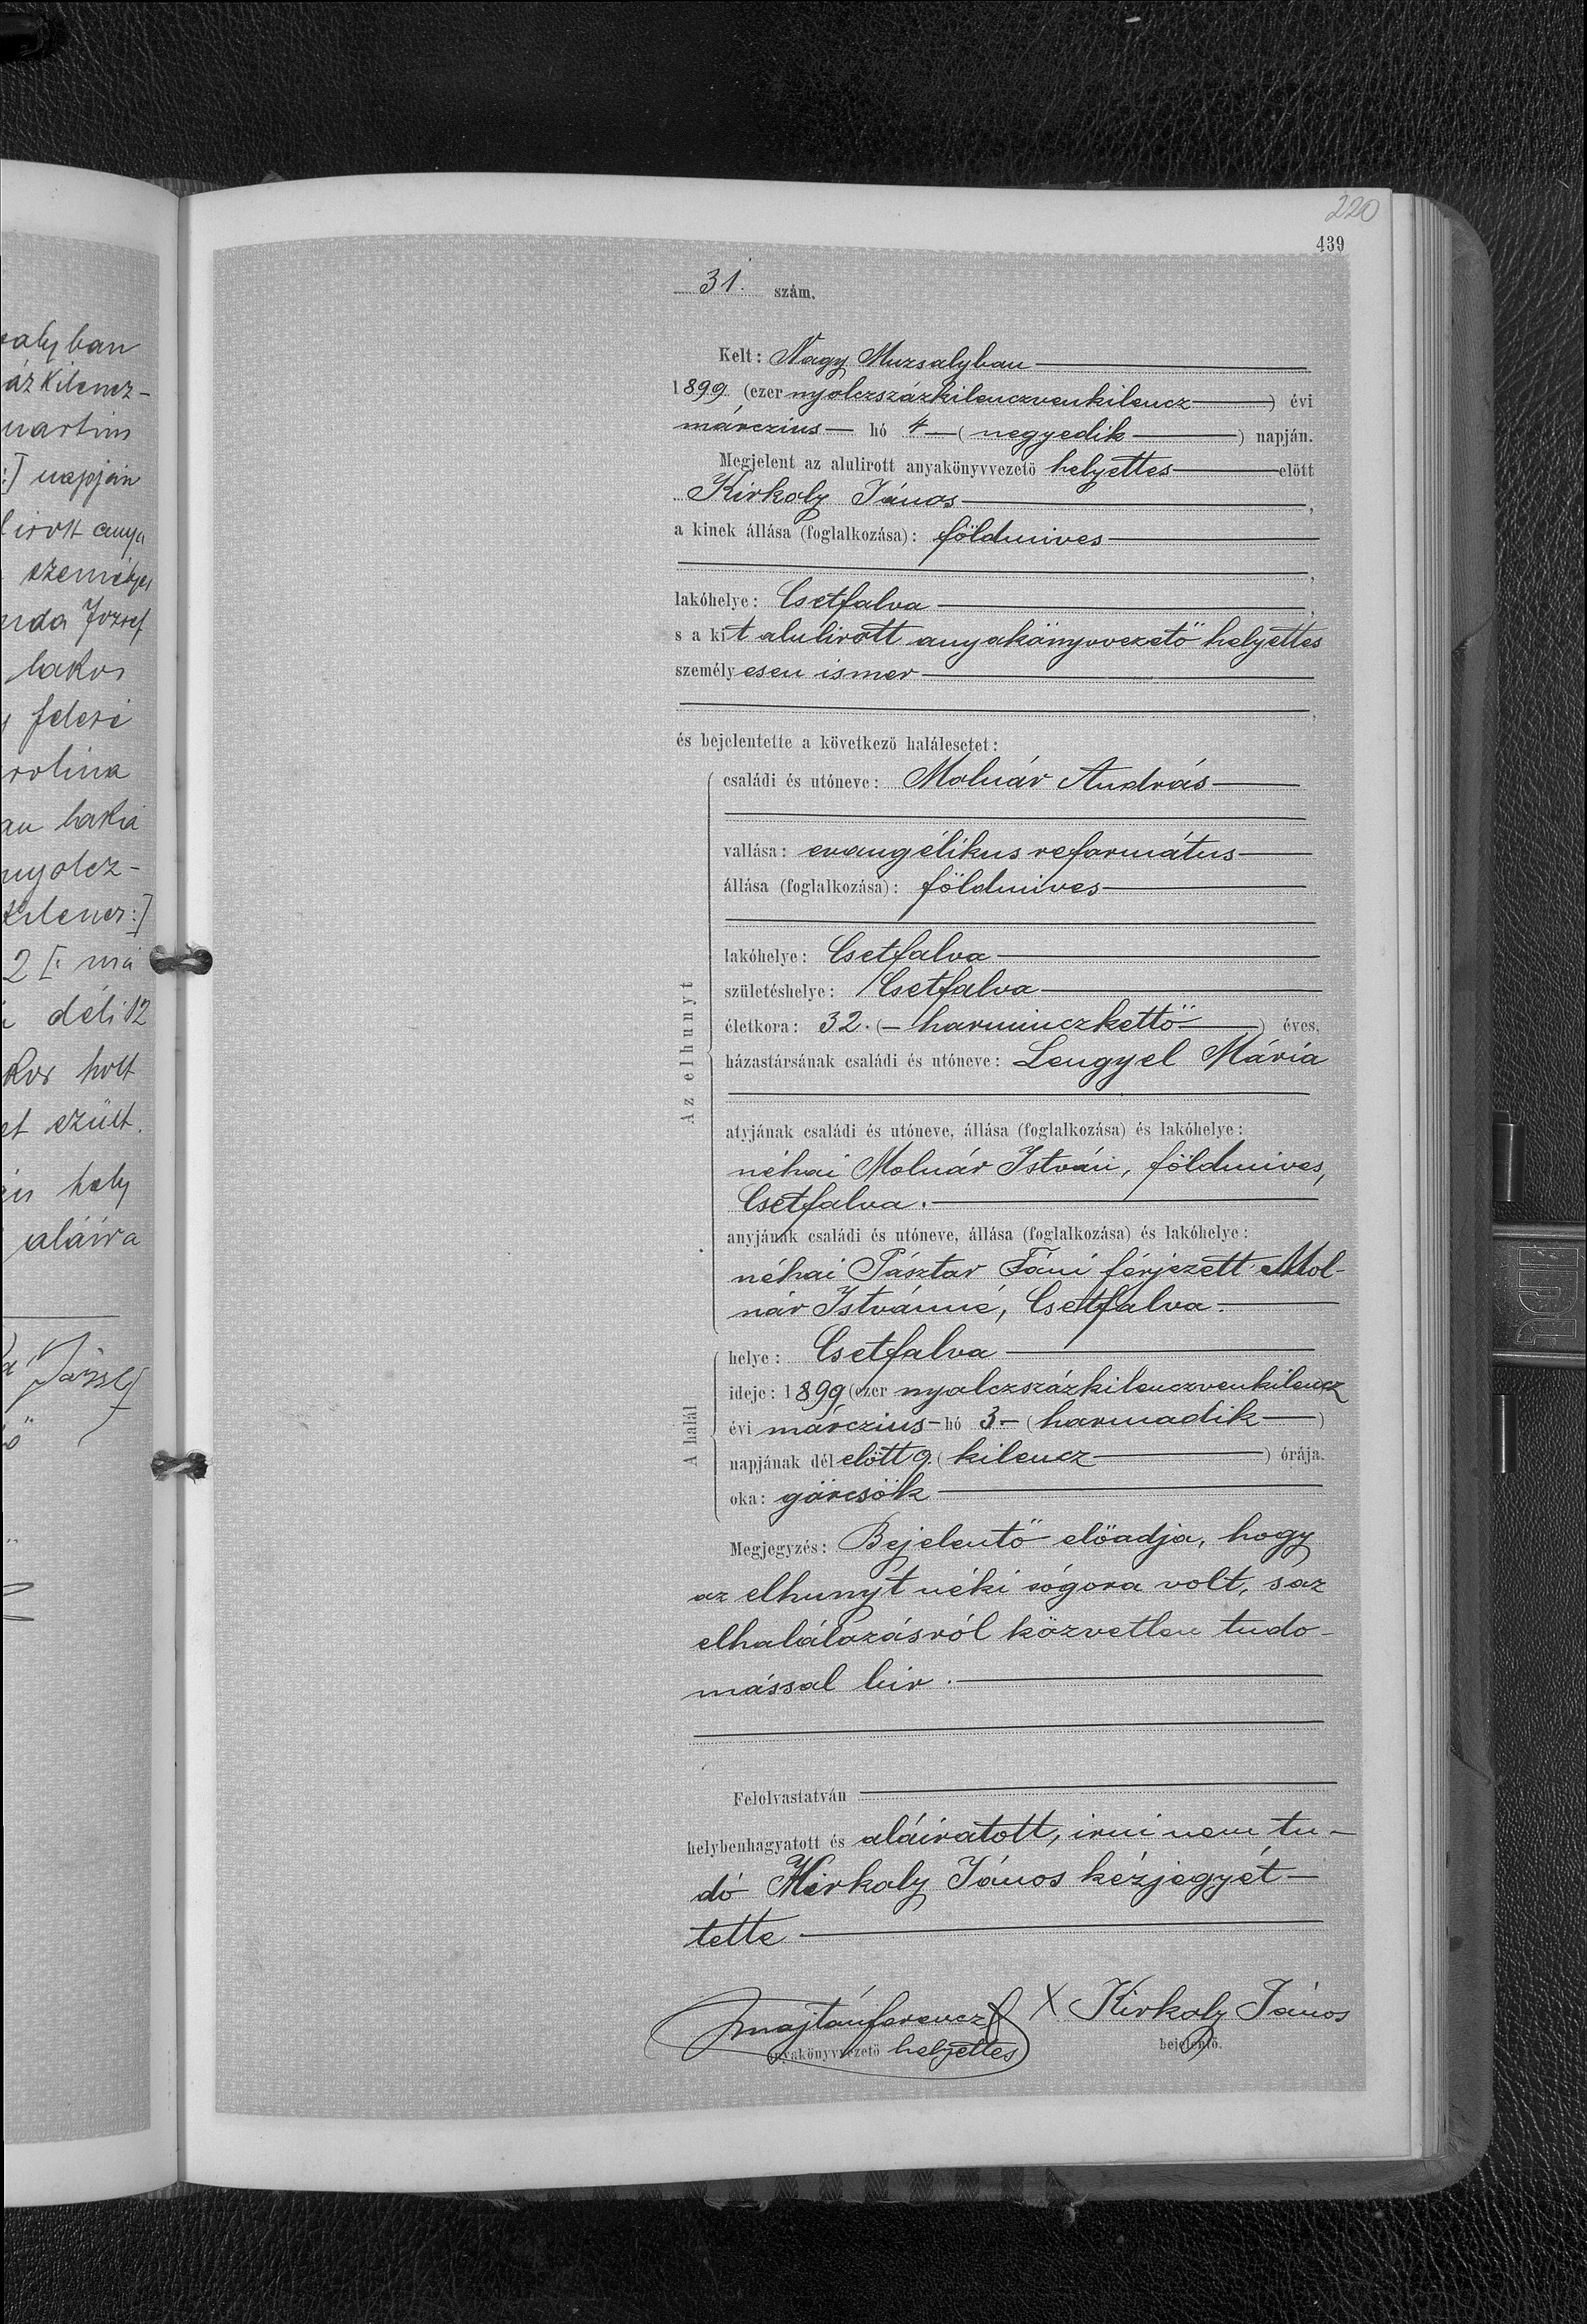 220
439
31. szám.
Kelt: Nagy Muzsalyban
1899 (ezer nyolczszázkilenczvenkilencz) évi
márczius hó 4 (negyedik) napján.
Megjelent az alulirott anyakönyvvezető helyettes előtt
Kirkoly János,
a kinek állása (foglalkozása): földmives
,
lakóhelye: Csetfalva,
s a kit alulirott anyakönyvvezető helyettes
személyesen ismer
,
és bejelentette a következő halálesetet:
Az elhunyt
családi és utóneve: Molnár András
vallása: evangélikus református
állása (foglalkozása): földmives
lakóhelye: Csetfalva
születéshelye: Csetfalva
életkora: 32. (harminczkettő) éves,
házastársának családi és utóneve: Lengyel Mária
atyjának családi és utóneve, állása (foglalkozása) és lakóhelye:
néhai Molnár István, földmives,
Csetfalva.
anyjának családi és utóneve, állása (foglalkozása) és lakóhelye:
néhai Pásztor Fáni férjezett Mol-
nár Istvánné, Csetfalva.
A halál
helye: Csetfalva
ideje: 1899 (ezer nyolczszázkilenczvenkilencz
évi márczius hó 3 (harmadik)
napjának délelőtt 9 (kilencz) órája.
oka: görcsök
Megjegyzés: Bejelentő előadja, hogy
az elhunyt néki sógora volt, s az
elhalálozásról közvetlen tudo-
mással bir.
Felolvastatván
helybenhagyatott és aláiratott, irni nem tu-
dó Kirkoly János kézjegyét
tette
Majtánferencz X Kirkoly János
anyakönyvvezető helyettes bejelentő.